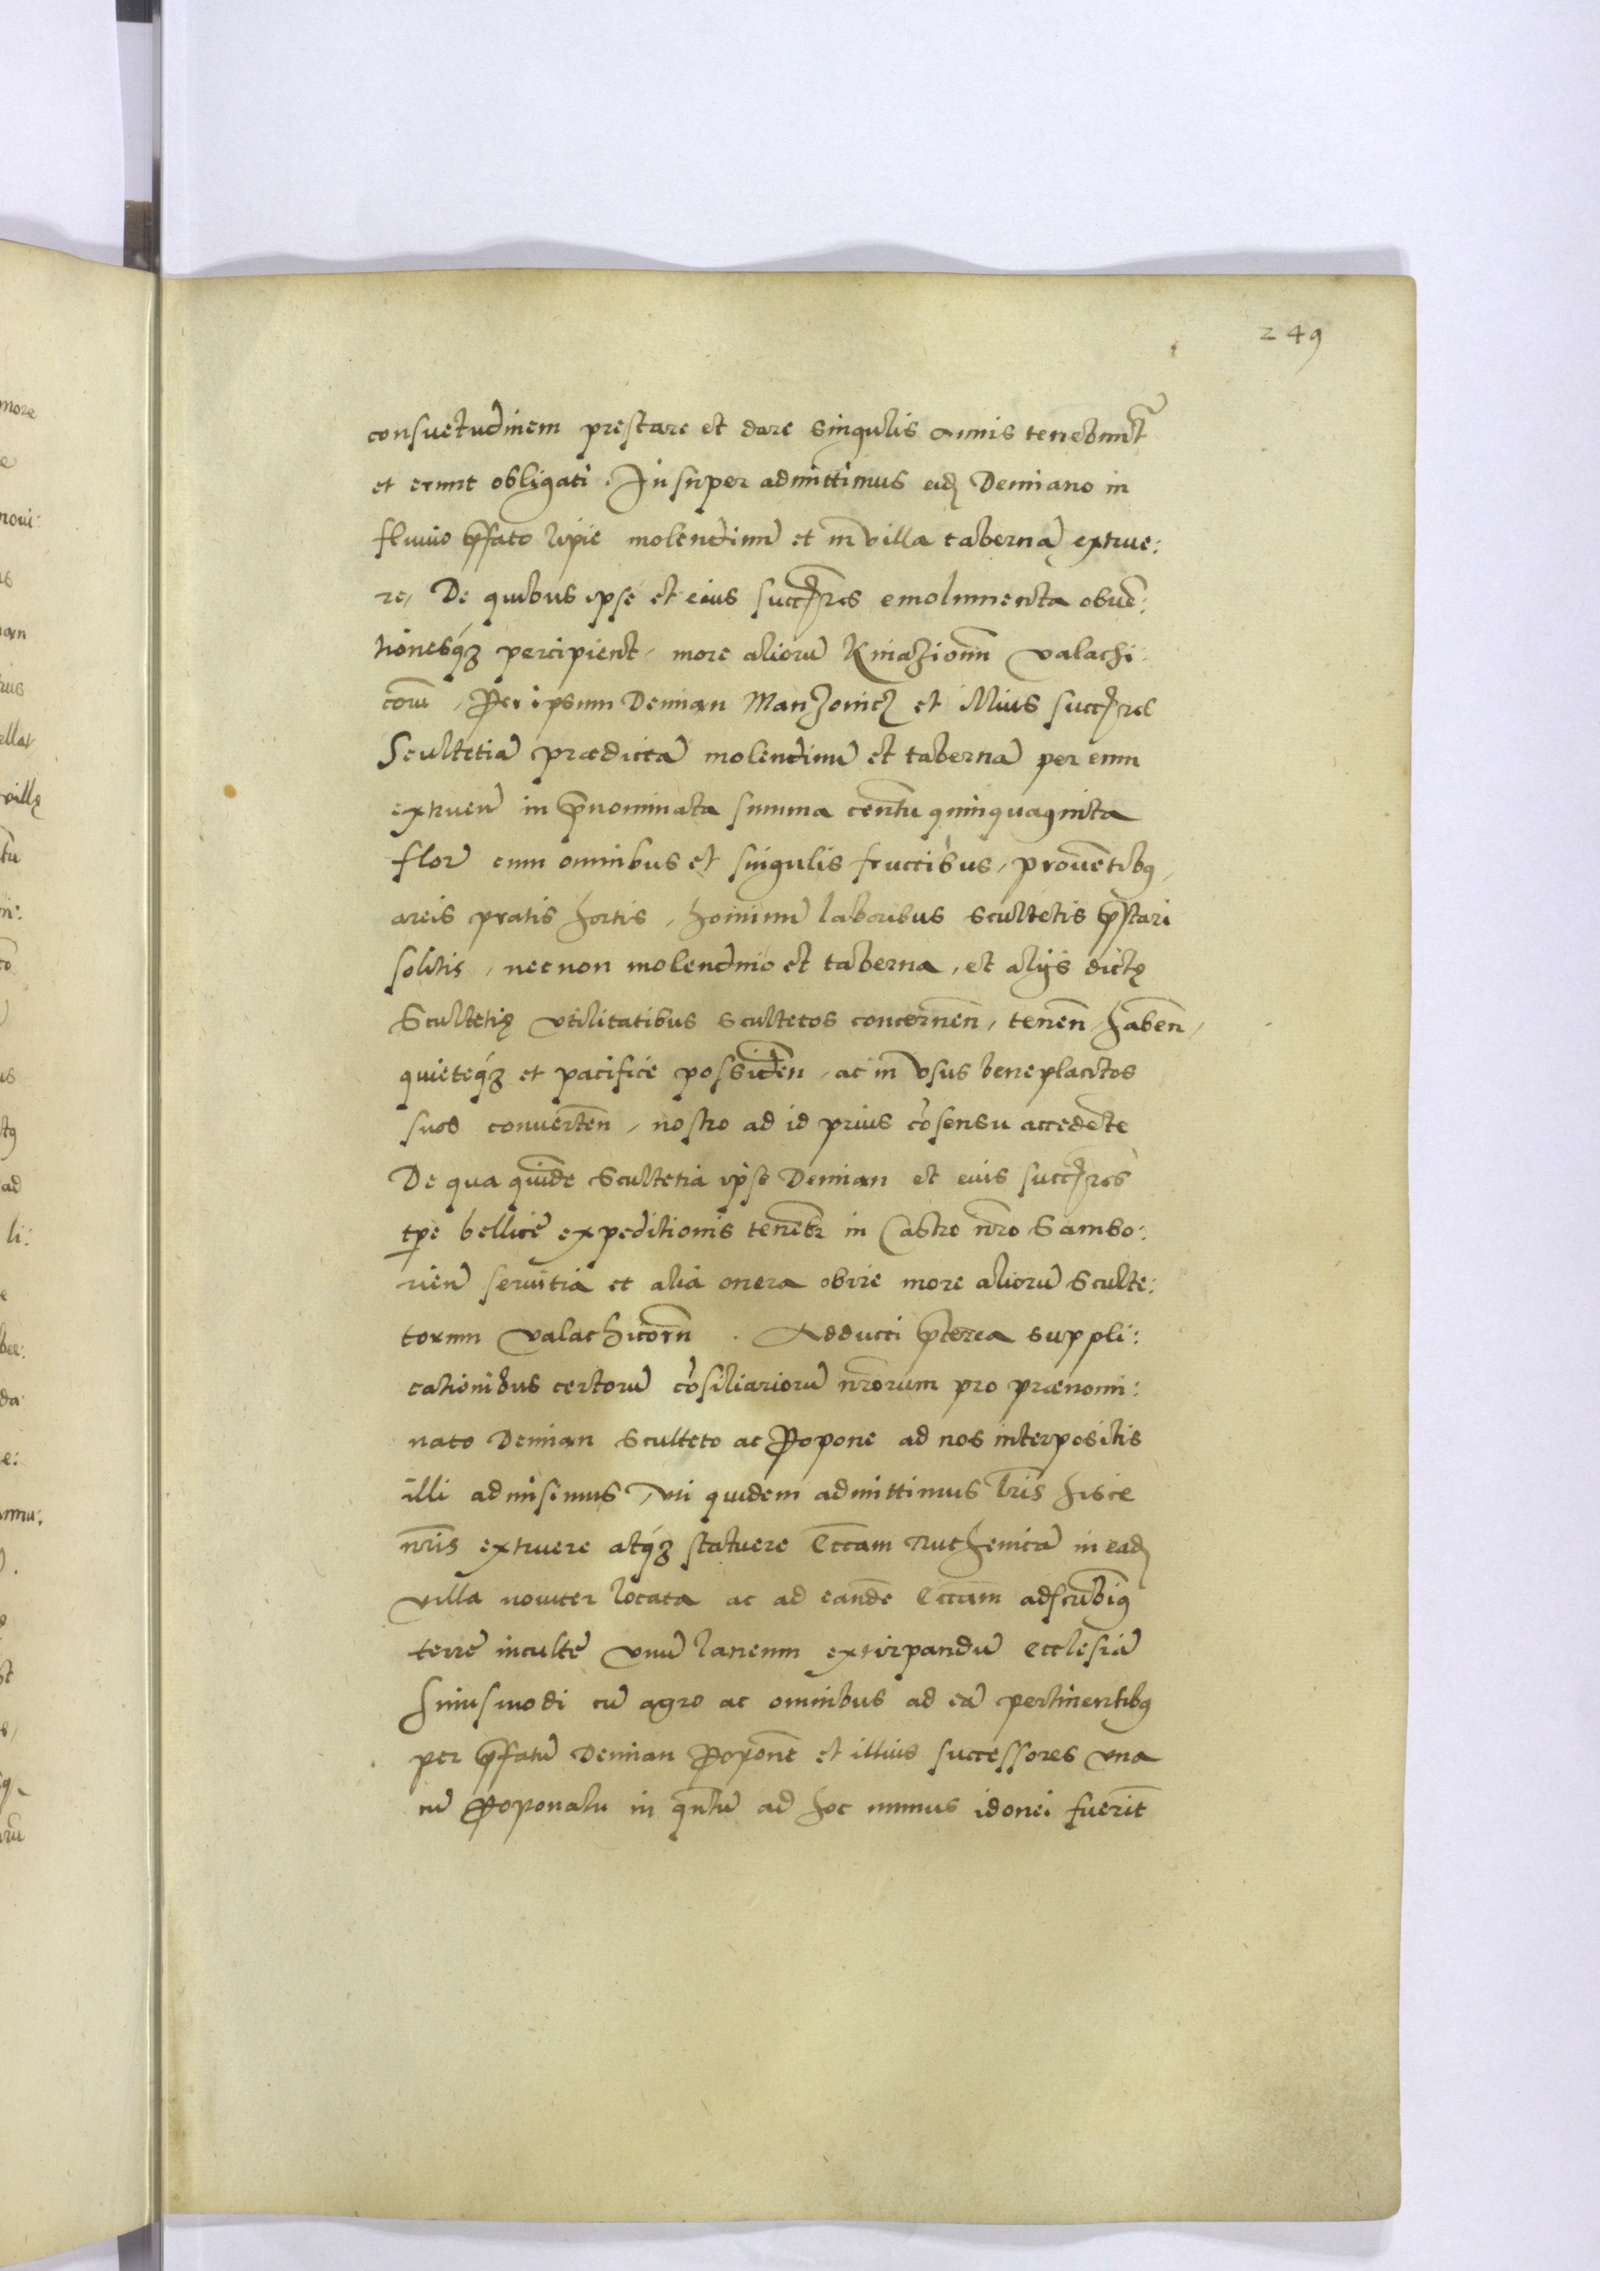 249
consuetudinem prestare et dare singulis annis tenebunt͂
et erunt obligati. Insuper admittimus eid Demiano in
fluuio p̄fato lipie molendinũ et in villa tabernã extrue:
re, De quibus ipse et eius succ̄res emolumenta obuẽ:
tionesq́ꝫ percipient, more aliorũ Kniazionũ valachi:
corũ, Per ipsum Demian Manzowicz et illius succ̄res
Scultetiã prædictã molendinũ et tabernã per eum
extruen̄ in p̄nominata summa centũ quinquaginta
flor̄ cum omnibus et singulis fructibus, prouẽtibꝯ,
areis pratis hortis, hominũ laboribus scultetis p̄stari
solitis, nec non molendino et taberna, et alijs dictę
Scultetię vtilitatibus scultetos concernen̄, tenen̄ haben̄,
quieteq́ꝫ et pacifice possiden̄, ac in vsus beneplacitos
suos conuerten̄, nostro ad id prius cõsensu accedẽte
De qua quidẽ Scultetia ipse Demian et eius succ̄res
tp̄e bellicẽ expeditionis tenebr̃ in Castro nr̄o Sambo:
rien̄ seruitia et alia onera obire more aliorũ Sculte:
torum valachicorũ. Adducti p̄terea suppli:
cationibus certorũ cõsiliariorũ nr̄orum pro prænomi:
nato Demian Sculteto ac Popone ad nos interpositis
illi admisimus, vti quidem admittimus lr̄is hisce
nr̄is extruere atq́ꝫ statuere Eccam Ruthenicã in ead
villa nouiter locata ac ad eandẽ Eccam adscribimꝯ
terrẽ incultẽ vnũ laneum extirpandũ Ecclesiã
huiusmodi cũ agro ac omnibus ad eã pertinentibꝯ
per p̄fatũ Demian Poponẽ et illius successores vna
cũ Poponatu in qn̄tũ ad hoc munus idonei fuerīt